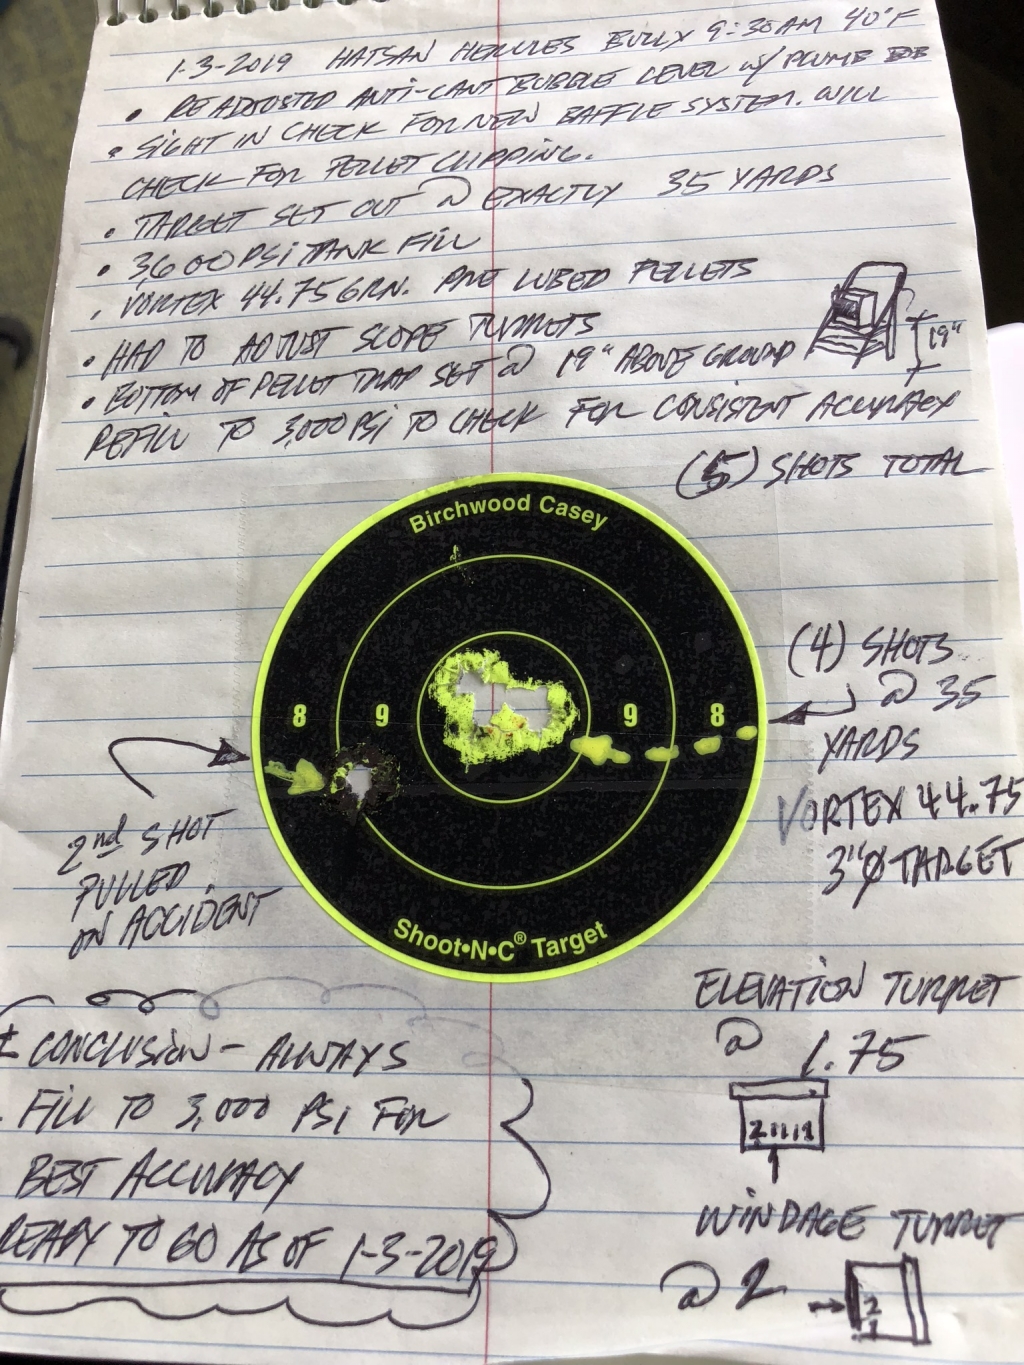 1-3-2019 HATSAN HERCULES BULLY 9:30AM 40°F
• READJUSTED ANTI-CANT BUBBLE LEVEL W/ PLUMB BOB
• SIGHT IN CHECK FOR NEW BAFFLE SYSTEM. WILL
CHECK FOR PELLET CLIPPING.
• TARGET SET OUT @ EXACTLY 35 YARDS
• 3600 PSI TANK FILL
• VORTEX 44.75 GRN. PRE LUBED PELLETS
• HAD TO ADJUST SCOPE TURRETS
• BOTTOM OF PELLET TRAP SET @ 19" ABOVE GROUND
19"
REFILL TO 3,000 PSI TO CHECK FOR CONSISTENT ACCURACY
(5) SHOTS TOTAL
Birchwood Casey
8 9 9 8
Shoot•N•C® Target
(4) SHOTS
@ 35
YARDS
VORTEX 44.75
3"Ø TARGET
2nd SHOT
PULLED
ON ACCIDENT
ELEVATION TURRET
@ 1.75
2 1
WINDAGE TURRET
@ 2
2
1
CONCLUSION - ALWAYS
FILL TO 3,000 PSI FOR
BEST ACCURACY
READY TO GO AS OF 1-3-2019